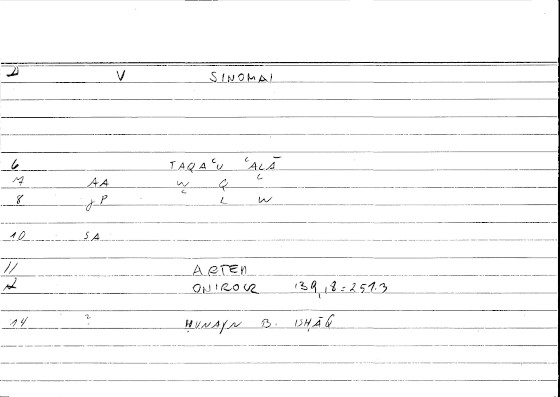 1 V SINOMAI
6 TAQAʿU ʿALĀ
7 AA W Q ʿ
8 gP ʿ L W
10 SA
11 ARTEM
12 ONIROCR 139,18 = 251.3
14 ? ḤUNAYN B. ISḤĀQ